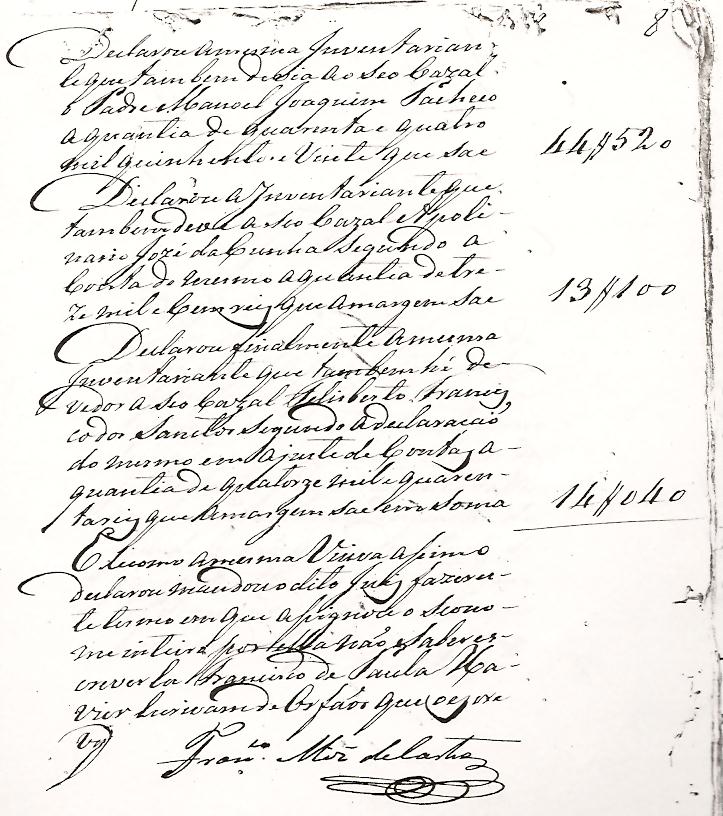 8
Declarou a mesma Inventarian-
te que tambem devia ao seo Cazal
o Padre Manoel Joaquim Pacheco
a quantia de quarenta e quatro
mil quinhentos e Vinte que sae 44//520
Declarou a Inventariante que
tambem deve a seo Cazal Apoli-
nario Jozé da Cunha segundo a
Conta do mesmo a quantia de tre-
ze mil e Cem reis que a margem sae 13//100
Declarou finalmente a mesma
Inventariante que tambem hé de-
vedor a seo Cazal Felisberto Francis
co dos Santos segundo a declaração
do mesmo em ajuste de Contas a
quantia de quatorze mil e quaren-
ta reis que a margem sae em soma 14//040
E como a mesma Viuva assim o
declarou mandou o dito Juis fazer es-
te termo em que assignou o seo no-
me inteiro por ella não saber es-
crever Francisco de Paula Xa-
vier Escrivam de Orfãos que o escre
vy
Fran.co Miz de Castro